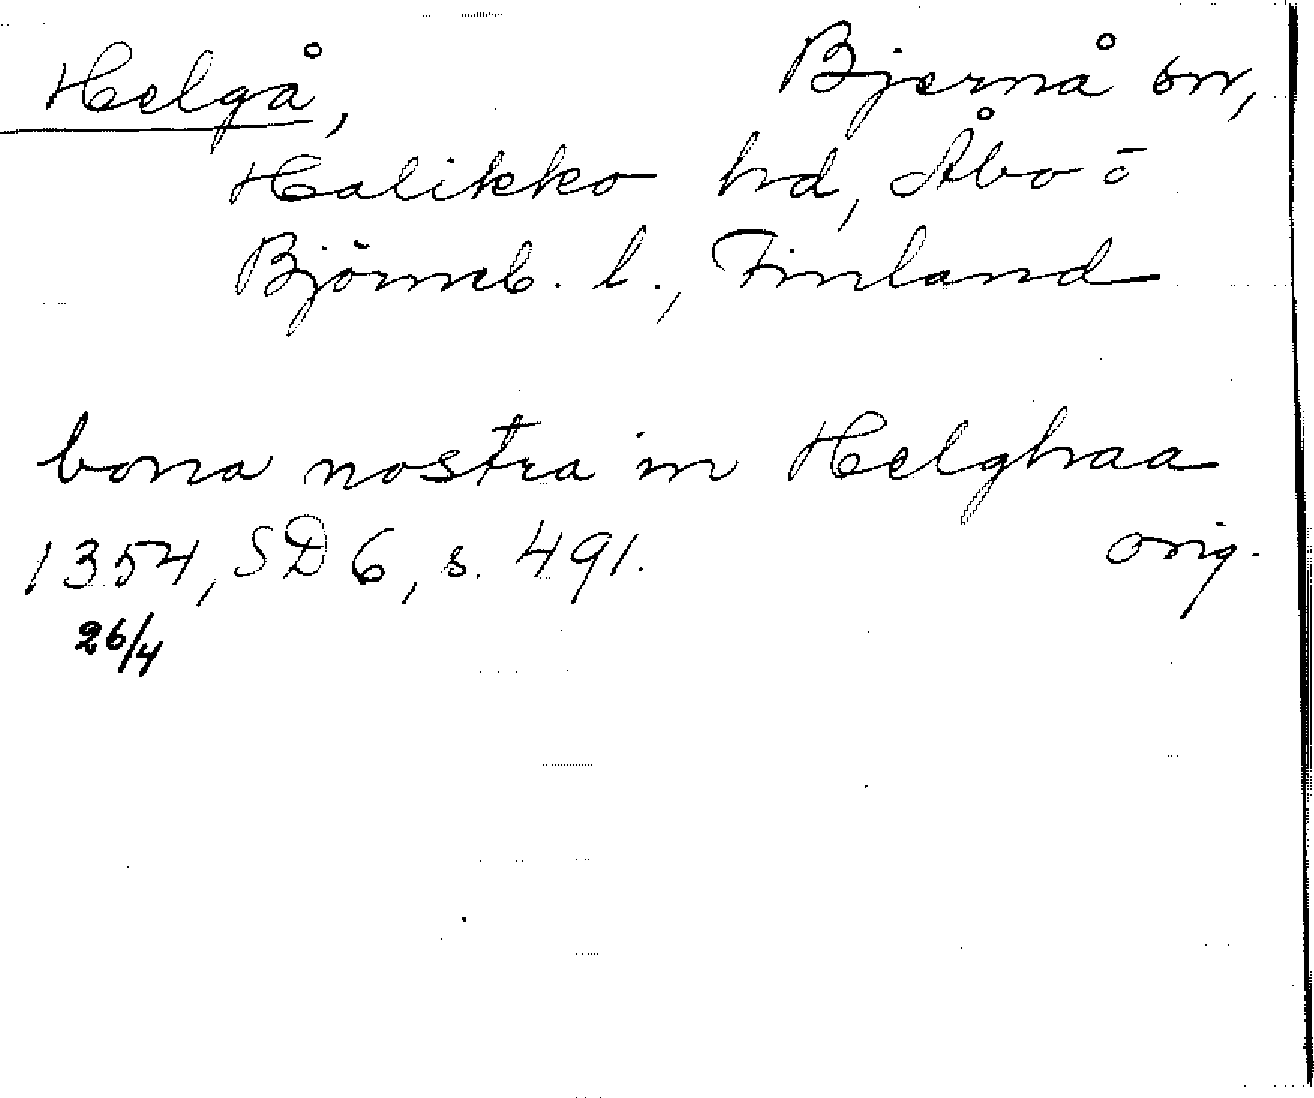 Helgå, Bjernå sn,
Halikko hd, Åbo ō
Björneb. l., Finland
bona nostra in Helghaa
1354, SD 6, s. 491. orig.
26/4